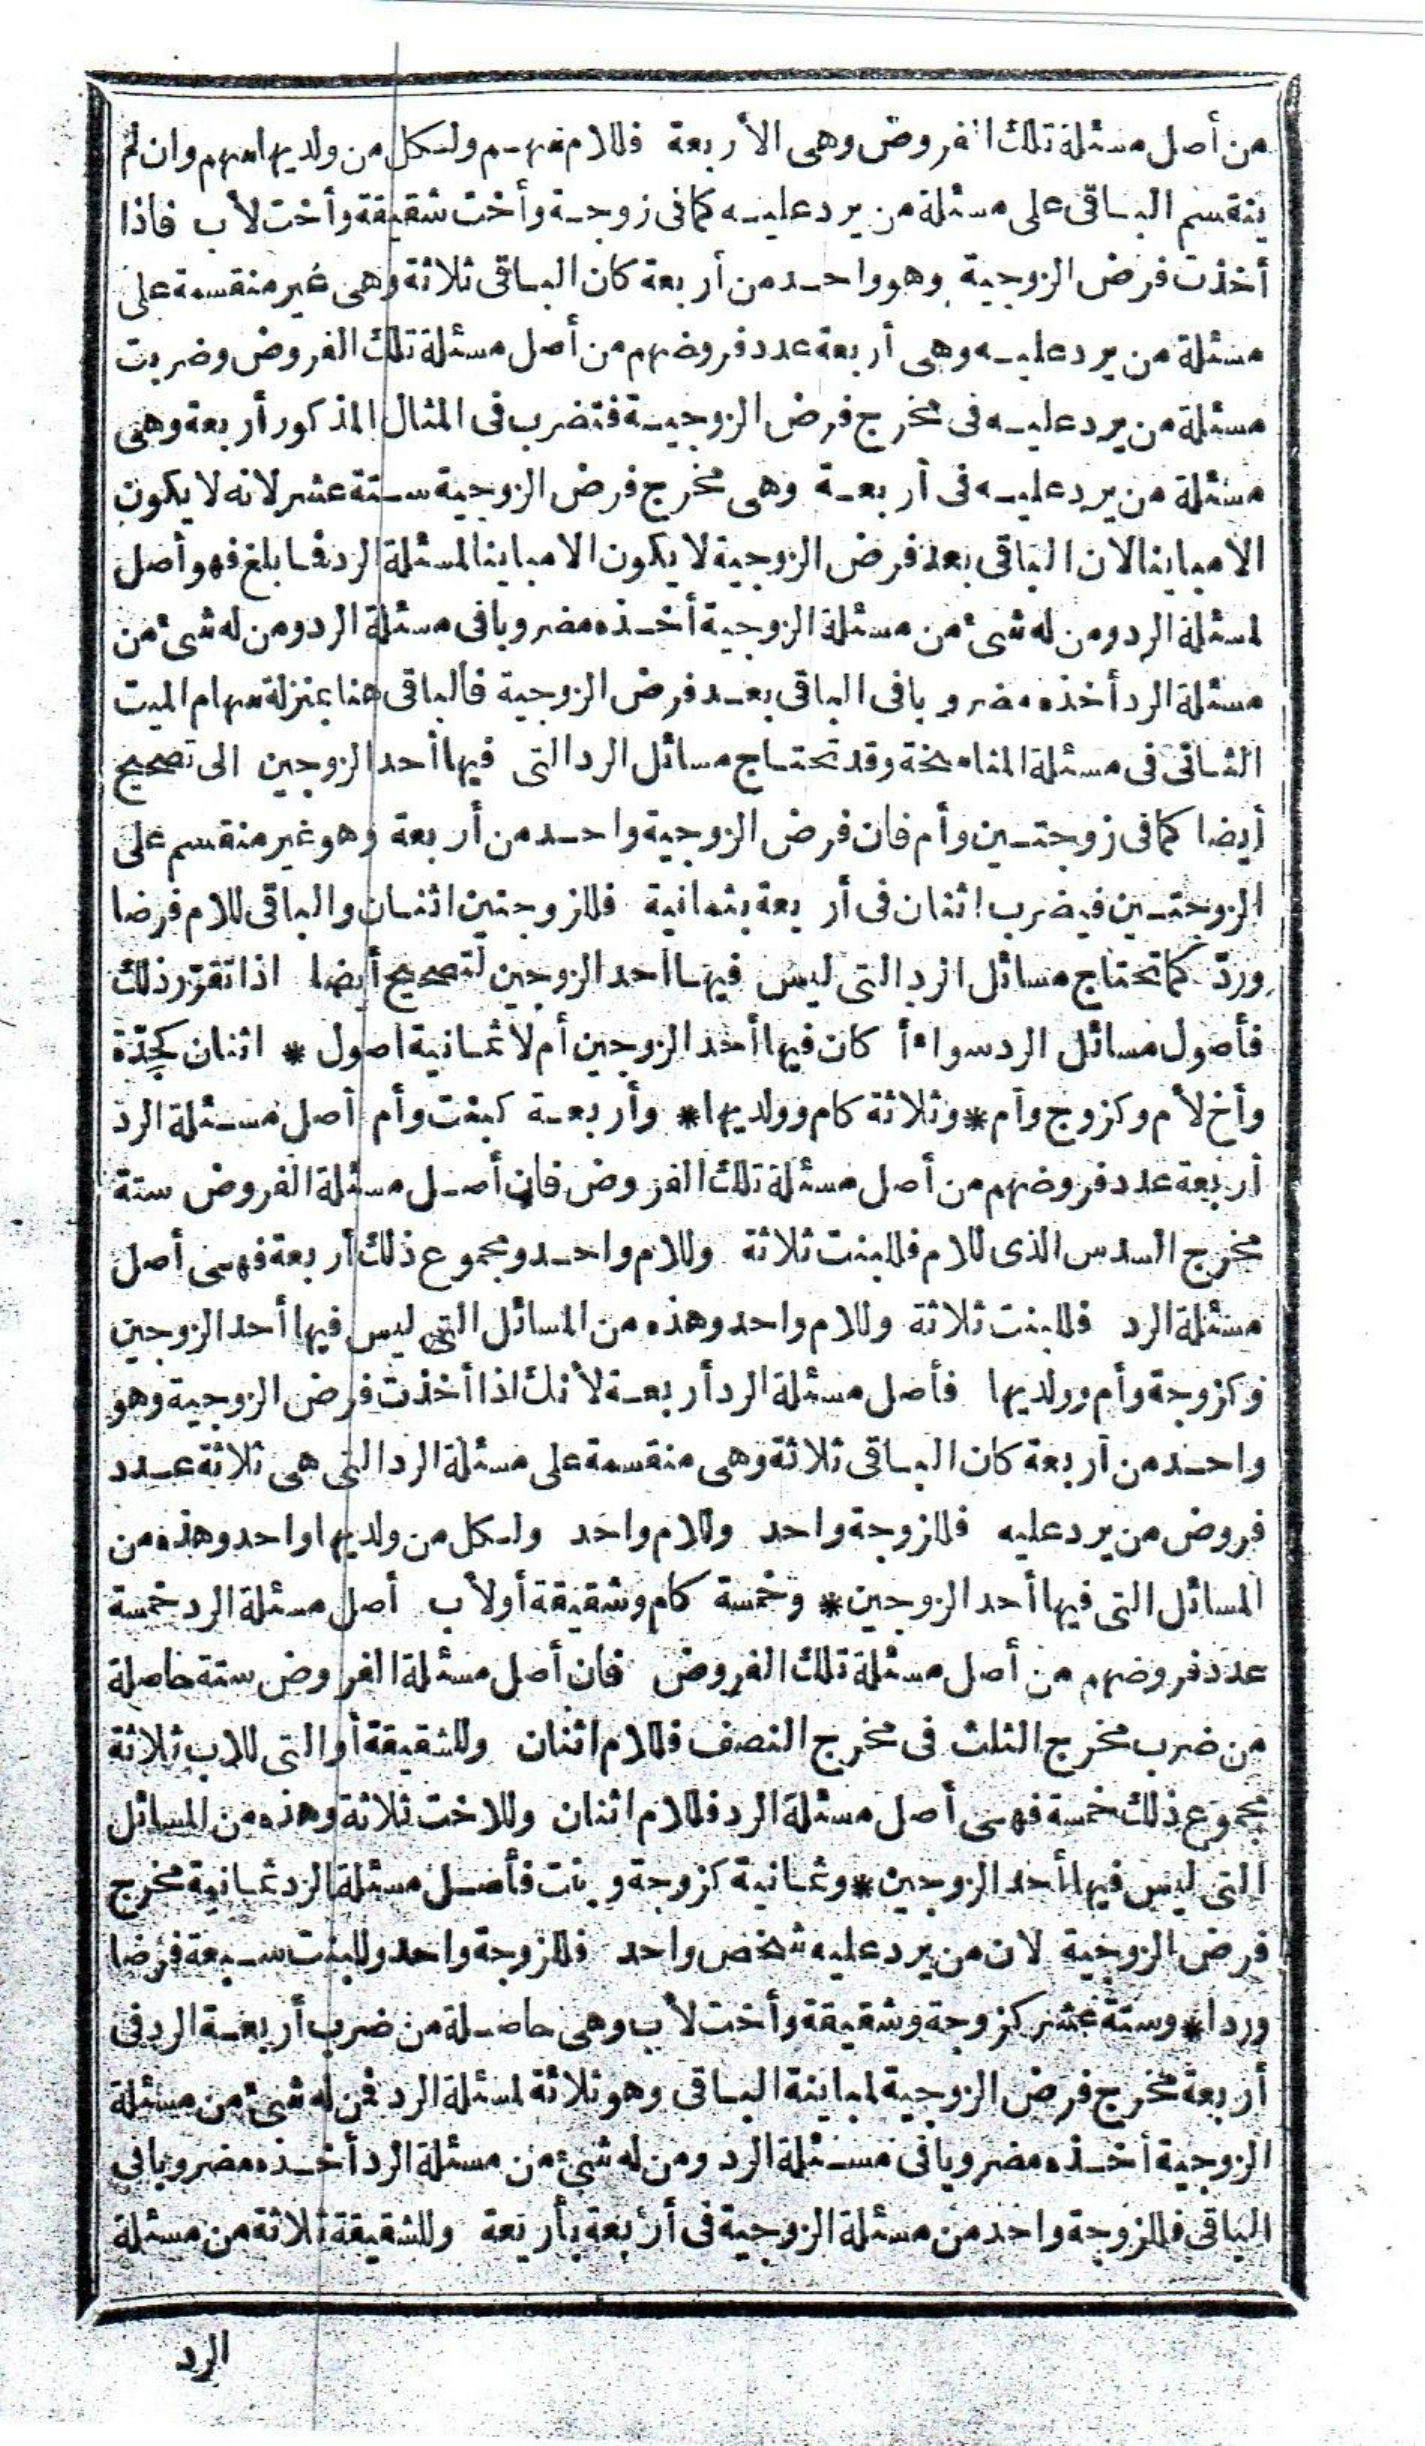 من أصل مسئلة تلك الفروض وهى الأربعة فللام سهم ولكل من ولديها سهم وان لم
ينقسم الباقى على مسئلة من يرد عليه كما فى زوجة وأخت شقيقة وأخت لأب فاذا
أخذت فرض الزوجية وهو واحد من أربعة كان الباقى ثلاثة وهى غير منقسمة على
مسئلة من يرد عليه وهى أربعة عدد فروضهم من أصل مسئلة تلك الفروض وضربت
مسئلة من يرد عليه فى مخرج فرض الزوجية فتضرب فى المثال المذكور أربعة وهى
مسئلة من يرد عليه فى أربعة وهى مخرج فرض الزوجية ستة عشر لانه لا يكون
الامباينا لان الباقى بعد فرض الزوجية لا يكون الامباينا لمسئلة الرد فما بلغ فهو أصل
لمسئلة الرد ومن له شئ من مسئلة الزوجية أخذه مضروبا فى مسئلة الرد ومن له شئ من
مسئلة الرد أخذه مضروبا فى الباقى بعد فرض الزوجية فالباقى هنا بمنزلة سهام الميت
الثانى فى مسئلة المناسخة وقد تحتاج مسائل الرد التى فيها أحد الزوجين الى تصحيح
أيضا كما فى زوجتين وأم فان فرض الزوجية واحد من أربعة وهو غير منقسم على
الزوجتين فيضرب اثنان فى أربعة بثمانية فللزوجتين اثنان والباقى للام فرضا
وردّ كما تحتاج مسائل الرد التى ليس فيها أحد الزوجين لتصحيح أيضا اذا تقرّر ذلك
فأصول مسائل الرد سواء أ كان فيها أحد الزوجين أم لا ثمانية اصول * اثنان كجدّة
وأخ لأم وكزوج وأم * وثلاثة كام وولديها * وأربعة كبنت وأم أصل مسئلة الرد
أربعة عدد فروضهم من أصل مسئلة تلك الفروض فان أصل مسئلة الفروض ستة
مخرج السدس الذى للام فللبنت ثلاثة وللام واحد ومجموع ذلك أربعة فهى أصل
مسئلة الرد فللبنت ثلاثة وللام واحد وهذه من المسائل التى ليس فيها أحد الزوجين
وكزوجة وأم وولديها فأصل مسئلة الرد أربعة لأنك اذا أخذت فرض الزوجية وهو
واحد من أربعة كان الباقى ثلاثة وهى منقسمة على مسئلة الرد التى هى ثلاثة عدد
فروض من يرد عليه فللزوجة واحد وللام واحد ولكل من ولديها واحد وهذه من
المسائل التى فيها أحد الزوجين * وخمسة كام وشقيقة أولأب أصل مسئلة الرد خمسة
عدد فروضهم من أصل مسئلة تلك الفروض فان أصل مسئلة الفروض ستة حاصلة
من ضرب مخرج الثلث فى مخرج النصف فللام اثنان وللشقيقة أو التى للاب ثلاثة
مجموع ذلك خمسة فهى أصل مسئلة الرد فللام اثنان وللاخت ثلاثة وهذه من المسائل
التى ليس فيها أحد الزوجين * وثمانية كزوجة وبنت فأصل مسئلة الرد ثمانية مخرج
فرض الزوجية لان من يرد عليه شخص واحد فللزوجة واحد وللبنت سبعة فرضا
وردا * وستة عشر كزوجة وشقيقة وأخت لأب وهى حاصلة من ضرب أربعة الرد فى
أربعة مخرج فرض الزوجية لمباينة الباقى وهو ثلاثة لمسئلة الرد فمن له شئ من مسئلة
الزوجية أخذه مضروبا فى مسئلة الرد ومن له شئ من مسئلة الرد أخذه مضروبا فى
الباقى فللزوجة واحد من مسئلة الزوجية فى أربعة بأربعة وللشقيقة ثلاثة من مسئلة
الرد